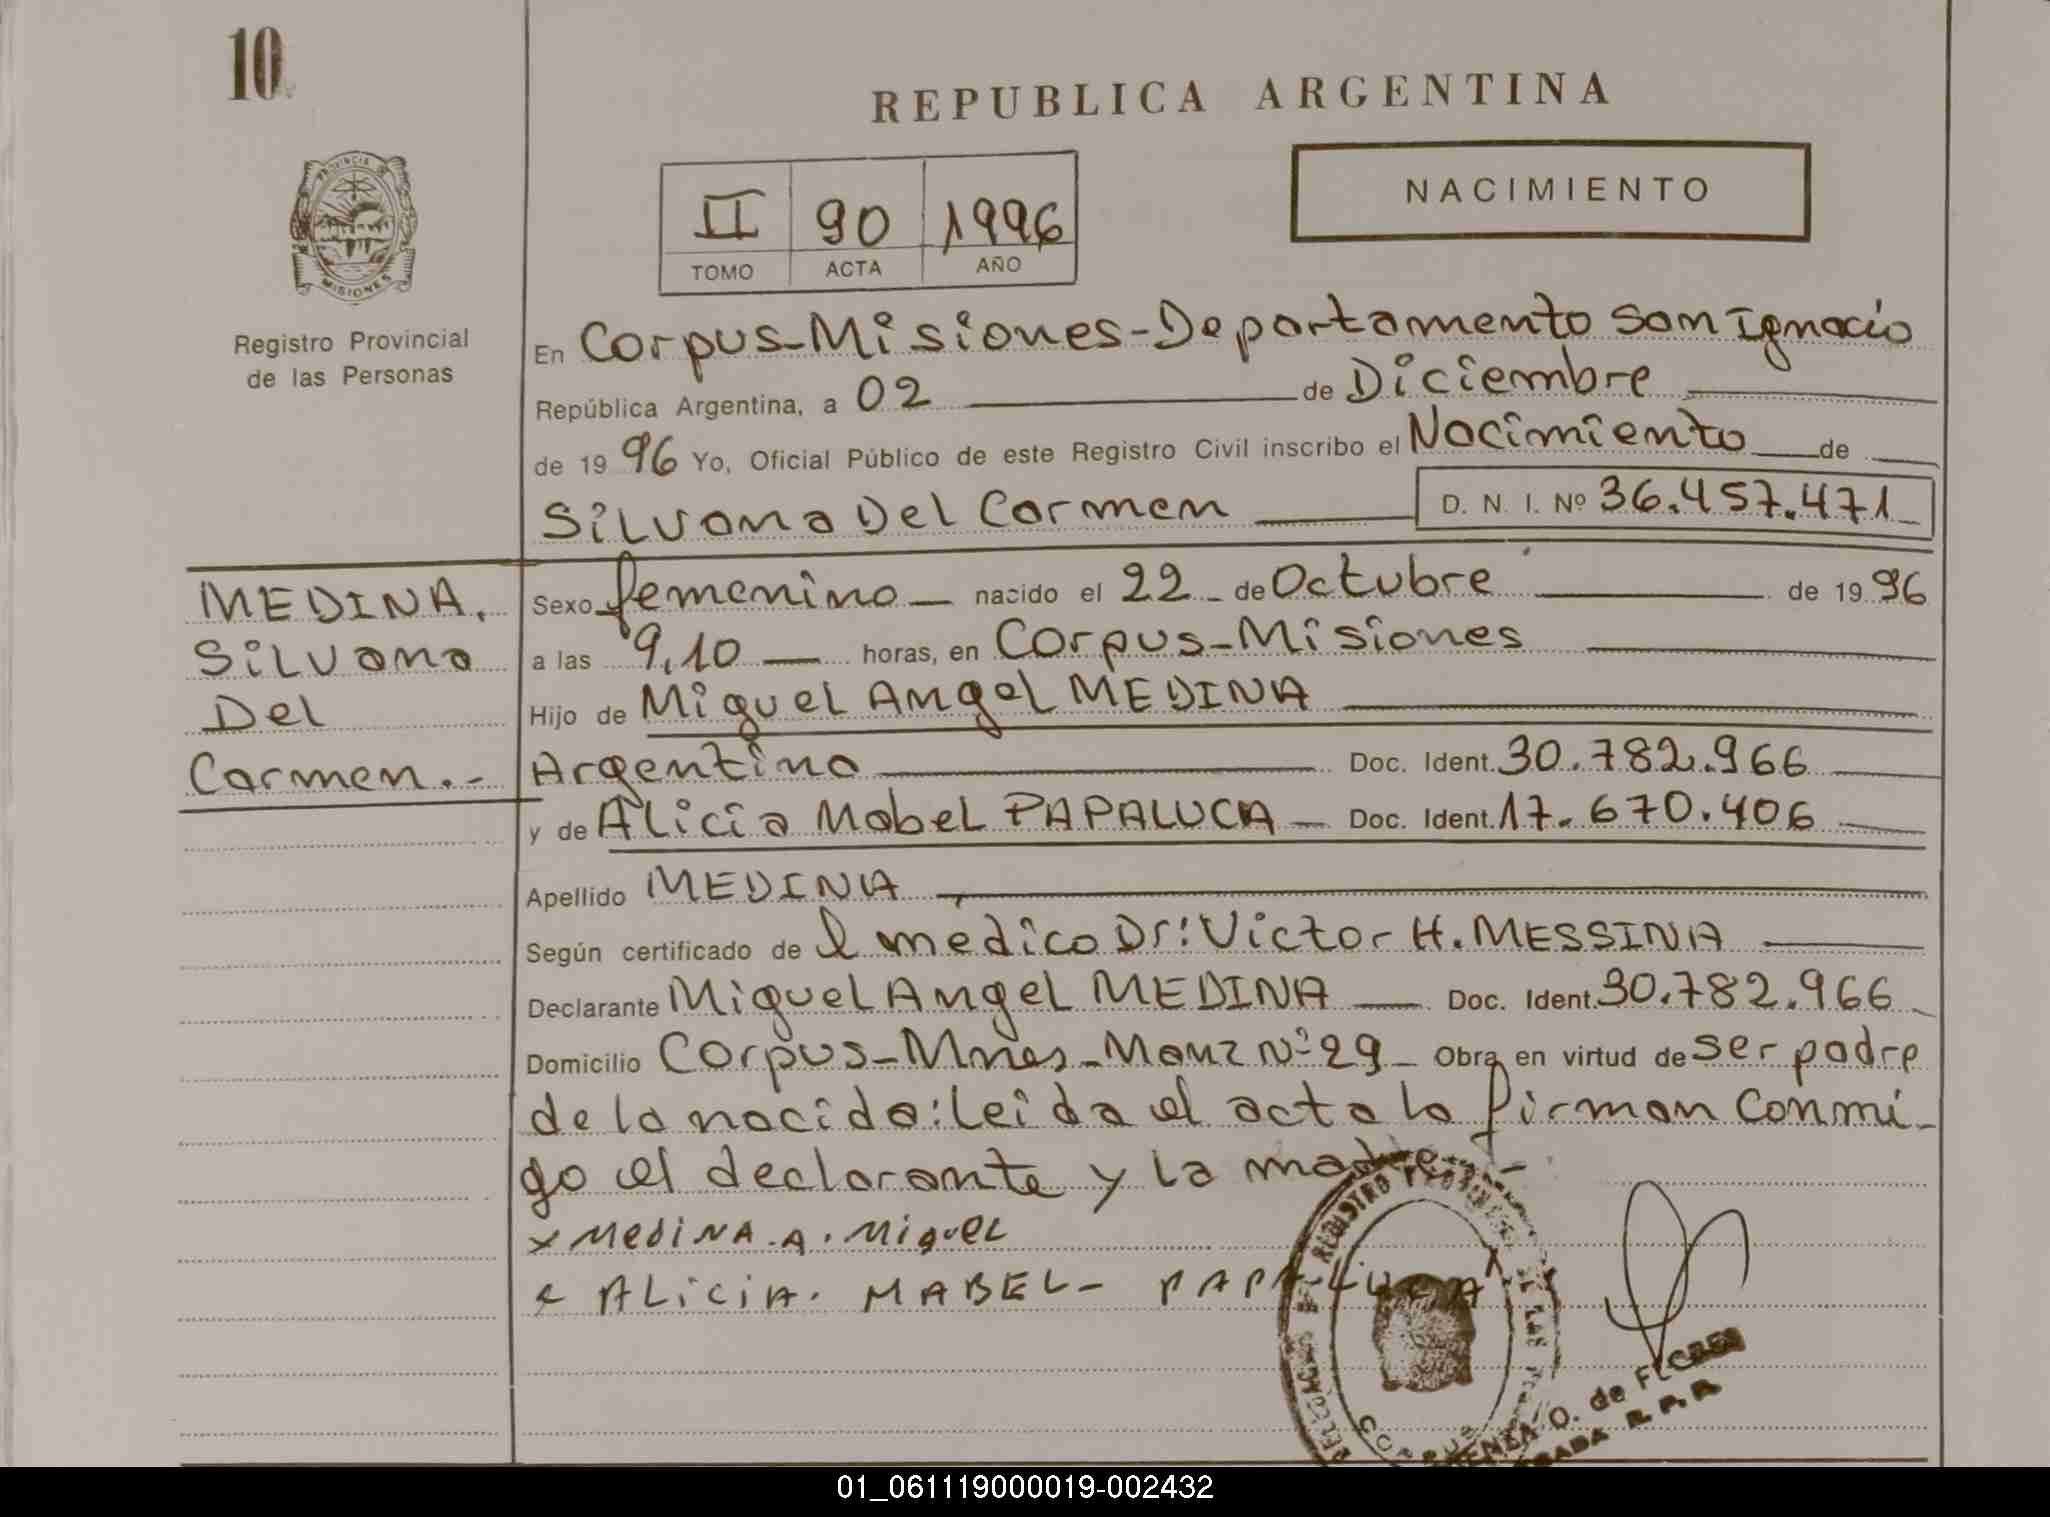 10
REPUBLICA ARGENTINA
NACIMIENTO
II 90 1996
TOMO ACTA AÑO
PROVINCIA DE
MISIONES
Registro Provincial
de las Personas
En Corpus-Misiones-Departamento San Ignacio
República Argentina, a 02 de Diciembre
de 1996 Yo, Oficial Público de este Registro Civil inscribo el Nacimiento de
Silvana Del Carmen D. N. I. Nº 36.457.471
MEDINA.
Silvana
Del
Carmen.-
Sexo femenino nacido el 22 de Octubre de 1996
a las 9,10 horas, en Corpus-Misiones
Hijo de Miguel Angel MEDINA
Argentino Doc. Ident. 30.782.966
y de Alicia Mabel PAPALUCA Doc. Ident. 17.670.406
Apellido MEDINA
Según certificado de l médico Dr: Victor H. MESSINA
Declarante Miguel Angel MEDINA Doc. Ident. 30.782.966
Domicilio Corpus-Mnes-Manz Nº 29 Obra en virtud de ser padre
de la nacida: Leida el acta la firman conmi-
go el declarante y la madre.-
x Medina. A. Miguel
x Alicia. MABEL- PAPALUCA
REGISTRO PROVINCIAL DE LAS
CORPUS
O. de FLORES
R. P. P.
01_061119000019-002432